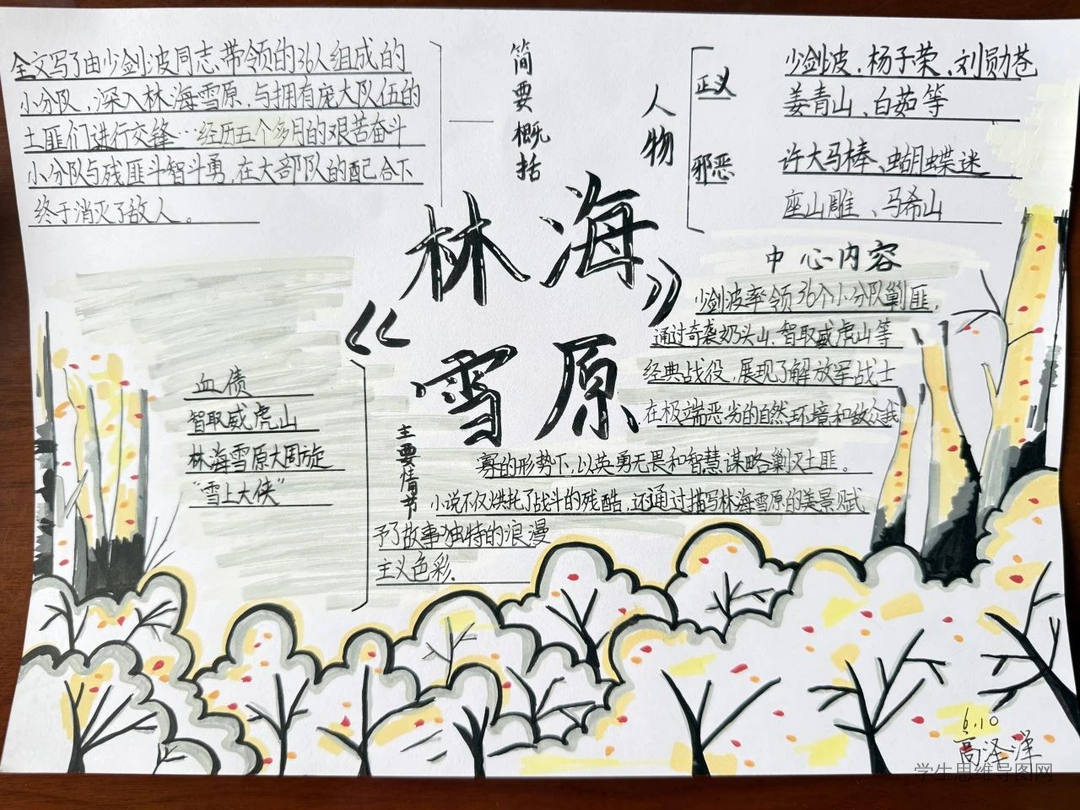 全文写了由少剑波同志带领的36人组成的
小分队、深入林海雪原,与拥有庞大队伍的
土匪们进行交锋…经历五个多月的艰苦奋斗
小分队与残匪斗智斗勇,在大部队的配合下
终于消灭了敌人。
简要概括
人物
正义
少剑波、杨子荣、刘勋苍
姜青山、白茹等
邪恶
许大马棒、蝴蝶迷
座山雕、马希山
《林海
雪原》
中心内容
少剑波率领36个小分队剿匪,
通过奇袭奶头山、智取威虎山等
经典战役,展现了解放军战士
在极端恶劣的自然环境和敌众我
寡的形势下,以英勇无畏和智慧谋略剿灭土匪。
小说不仅烘托了战斗的残酷,还通过描写林海雪原的美景赋
予了故事独特的浪漫
主义色彩.
主要情节
血债
智取威虎山
林海雪原大周旋
"雪上大侠"
6.10
高泽洋
学生思维导图网